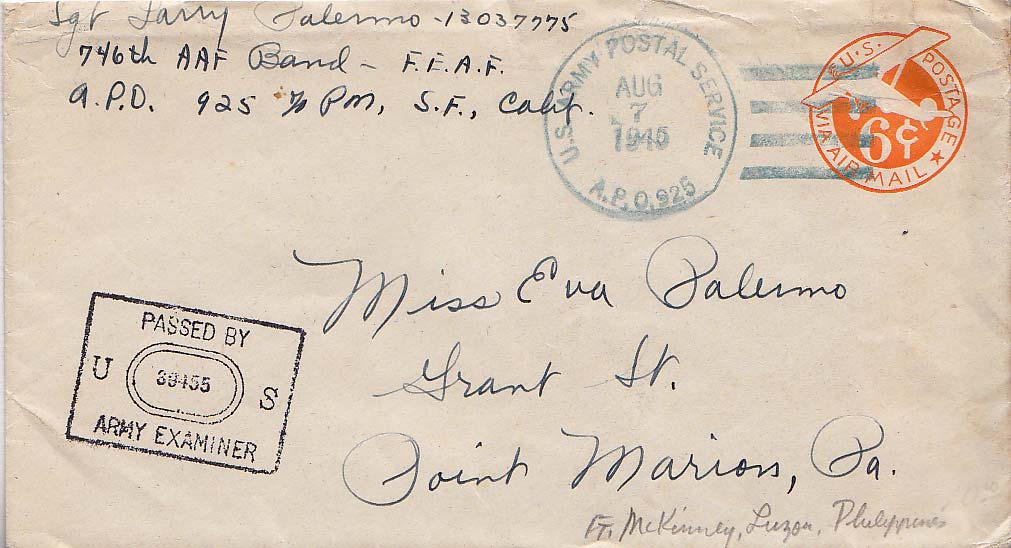 Sgt Larry Palermo - 13037775
746th AAF Band - F.E.A.F.
A.P.O. 925 % PM, S.F., Calif.
U.S. ARMY POSTAL SERVICE
AUG
7
1945
A.P.O. 925
U.S. POSTAGE
6¢
VIA AIR MAIL
Miss Eva Palermo
Grant St.
Point Marion, Pa.
PASSED BY
U 39455 S
ARMY EXAMINER
Ft. McKinney, Luzon, Philippines